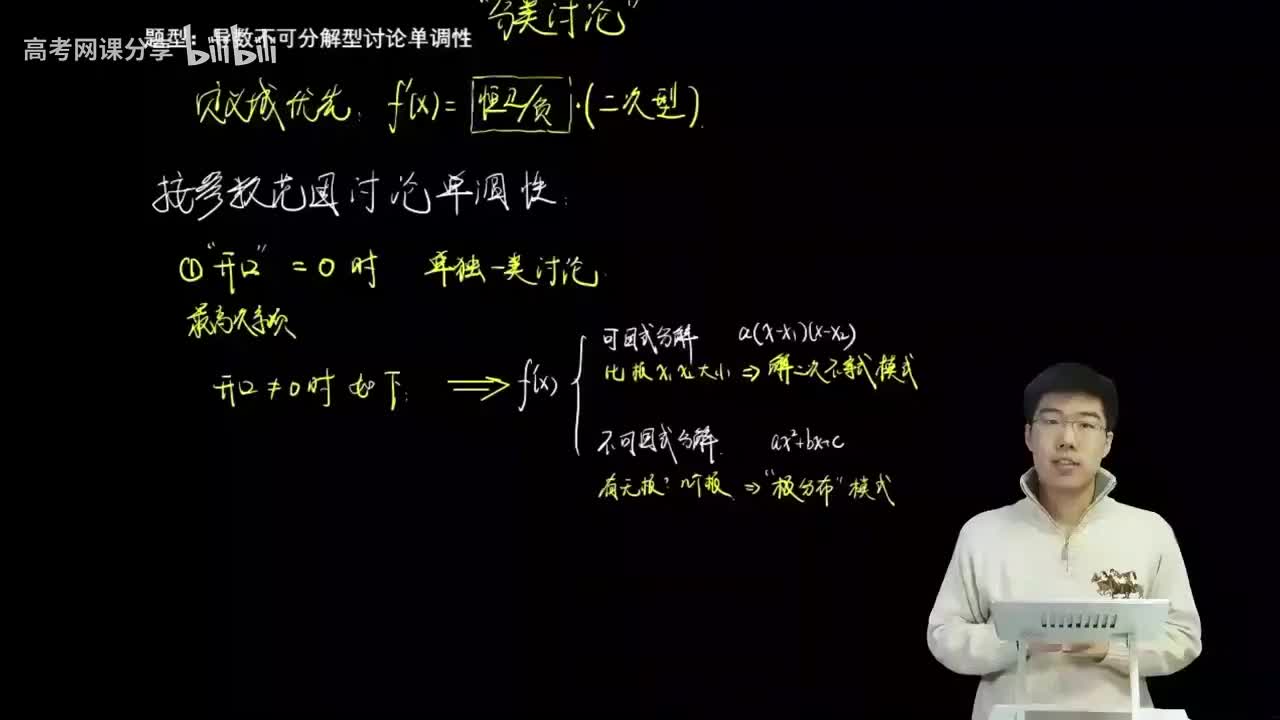 "分类讨论"
题型：导数不可分解型讨论单调性
高考网课分享 bilibili
定义域优先: f'(x) = 恒正/负 ·(二次型).
按参数范围讨论单调性:
① "开口" = 0 时 单独一类讨论.
最高次系数
开口 ≠ 0 时 如下: ⟹ f'(x)
可因式分解 a(x-x₁)(x-x₂)
比根 x₁ x₂ 大小 ⇒ 解二次不等式模式
不可因式分解. ax²+bx+c
有无根? 几个根. ⇒ "根分布" 模式